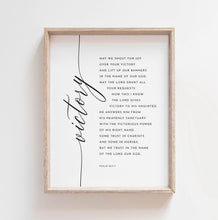 victory
MAY WE SHOUT FOR JOY
OVER YOUR VICTORY
AND LIFT UP OUR BANNERS
IN THE NAME OF OUR GOD.
MAY THE LORD GRANT ALL
YOUR REQUESTS.
NOW THIS I KNOW:
THE LORD GIVES
VICTORY TO HIS ANOINTED.
HE ANSWERS HIM FROM
HIS HEAVENLY SANCTUARY
WITH THE VICTORIOUS POWER
OF HIS RIGHT HAND.
SOME TRUST IN CHARIOTS
AND SOME IN HORSES,
BUT WE TRUST IN THE NAME
OF THE LORD OUR GOD.
PSALM 20:5-7